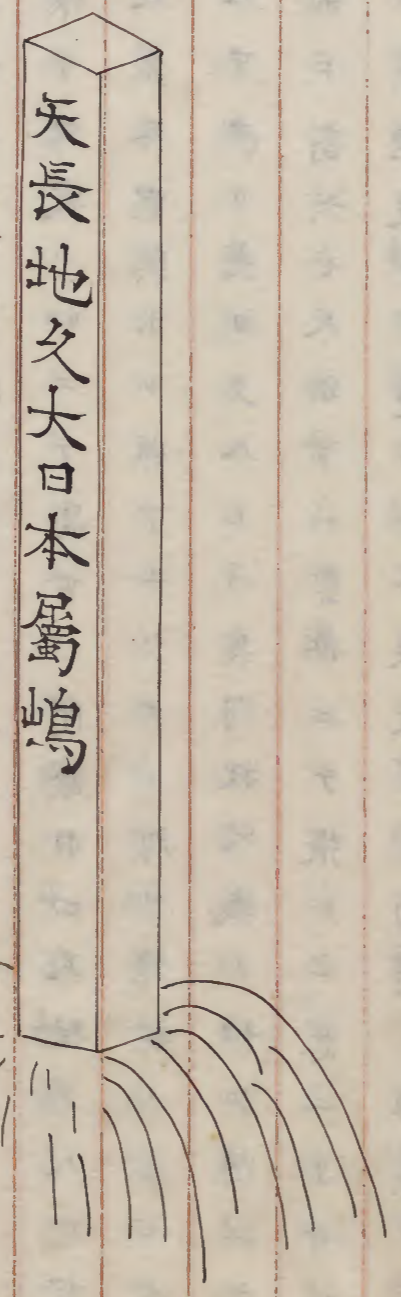 天長地久大日本屬嶋